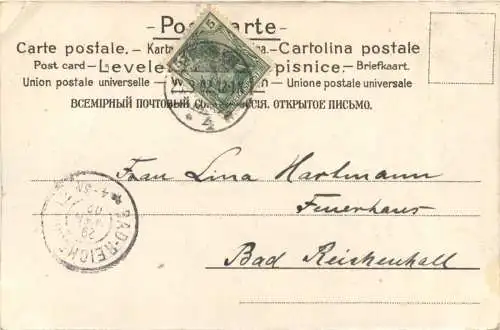 Postkarte
Carte postale. Cartolina postale
Post card Levele pisnice. Briefkaart.
Union postale universelle Unione postale universale
ВСЕМІРНЫЙ ПОЧТОВЫЙ ОТКРЫТОЕ ПИСЬМО.
4
Frau Lina Hartmann
Feuerhaus
Bad Reichenhall
BAD-REICH
29
02